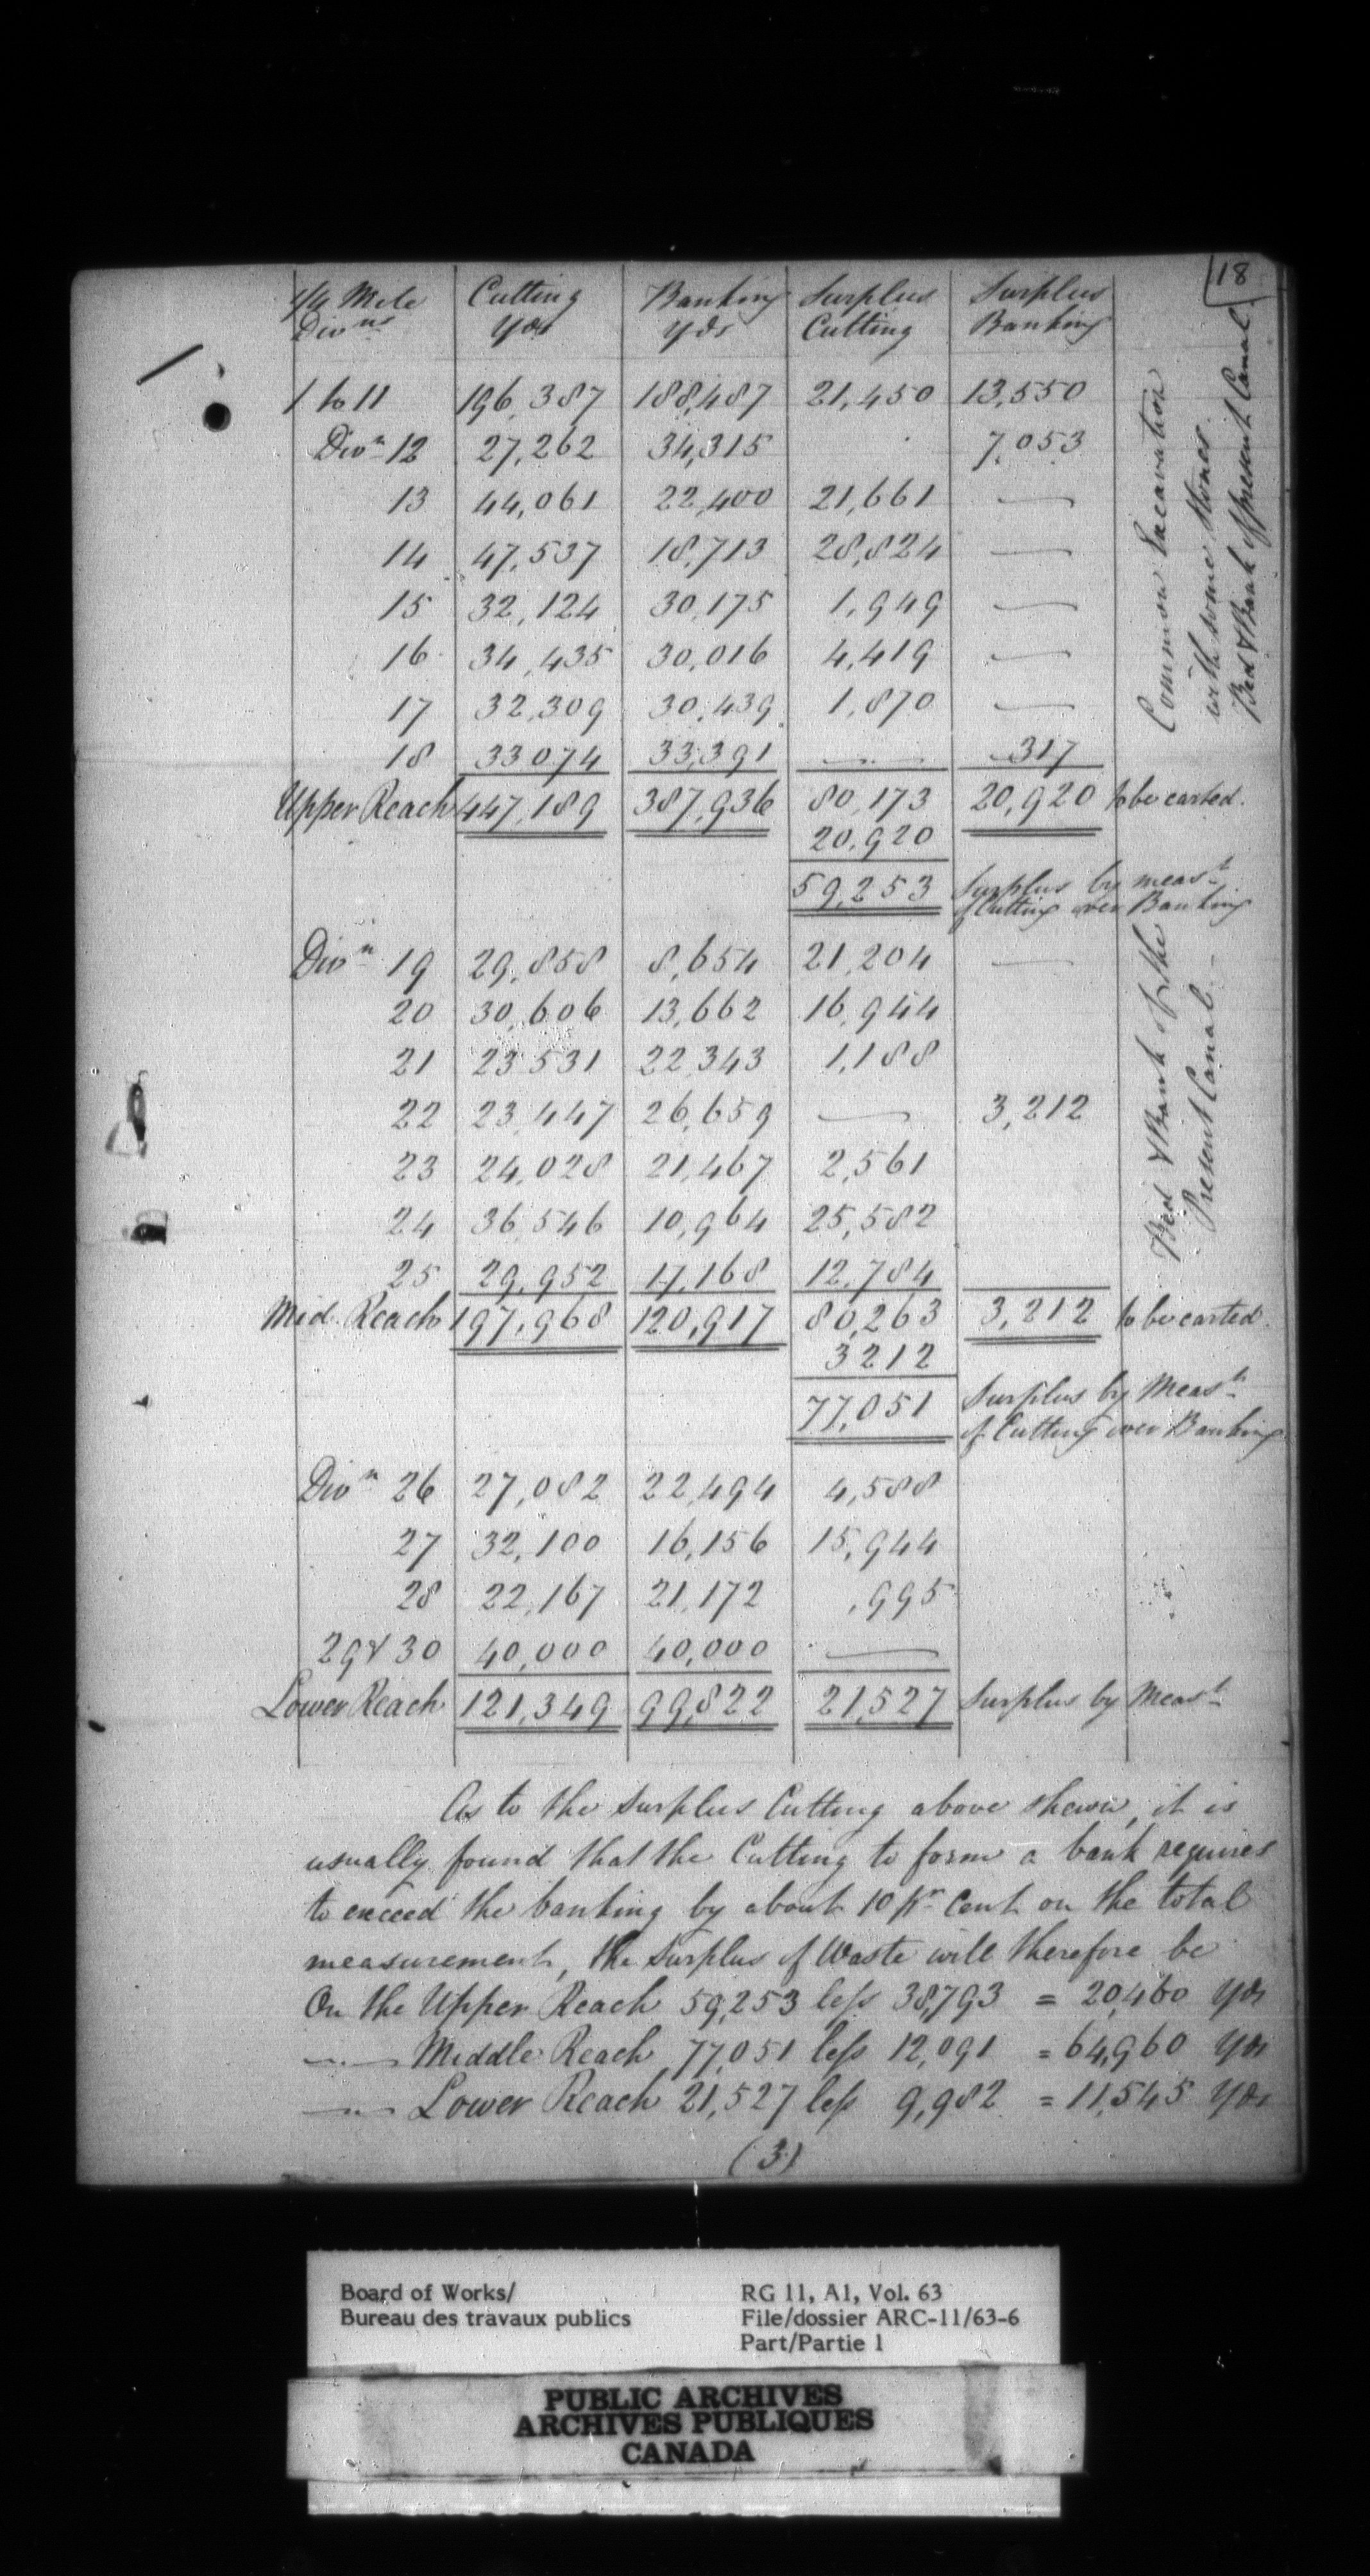 18
1/4 Mile Cutting Banking Surplus Surplus
Divns yds yds Cutting Banking
1 to 11 196,387 188,487 21,450 13,550
Divn 12 27,262 34,315 7,053
13 44,061 22,400 21,661 —
14 47,537 18,713 28,824 —
15 32,124 30,175 1,949 —
16 34,435 30,016 4,419 —
17 32,309 30,439 1,870 —
18 33074 33,391 — 317
Common Excavation
with some Stones
Bed & Bank of present Canal.
Upper Reach 447,189 387,936 80,173 20,920 to be carted.
20,920
59,253 Surplus by meast
of Cutting over Banking
Divn 19 29,858 8,654 21,204 —
20 30,606 13,662 16,944
21 23531 22,343 1,188
22 23,447 26,659 — 3,212
23 24,028 21,467 2,561
24 36,546 10,964 25,582
25 29,952 17,168 12,784
Bed & Bank of the
Present Canal —
Mid. Reach 197,968 120,917 80,263 3,212 to be carted.
3212
77,051 Surplus by Meast
of Cutting over Banking
Divn 26 27,082 22,494 4,588
27 32,100 16,156 15,944
28 22,167 21,172 ,995
29 & 30 40,000 40,000 —
Lower Reach 121,349 99,822 21,527 Surplus by Meast
As to the Surplus Cutting above shewn, it is
usually found that the Cutting to form a bank requires
to exceed the banking by about 10 pr Cent on the total
measurement, the Surplus of Waste will therefore be
On the Upper Reach 59,253 less 38,793 = 20,460 yds
—"— Middle Reach 77,051 less 12,091 = 64,960 yds
—"— Lower Reach 21,527 less 9,982 = 11,545 yds
(3)
Board of Works/ RG 11, A1, Vol. 63
Bureau des travaux publics File/dossier ARC-11/63-6
Part/Partie 1
PUBLIC ARCHIVES
ARCHIVES PUBLIQUES
CANADA